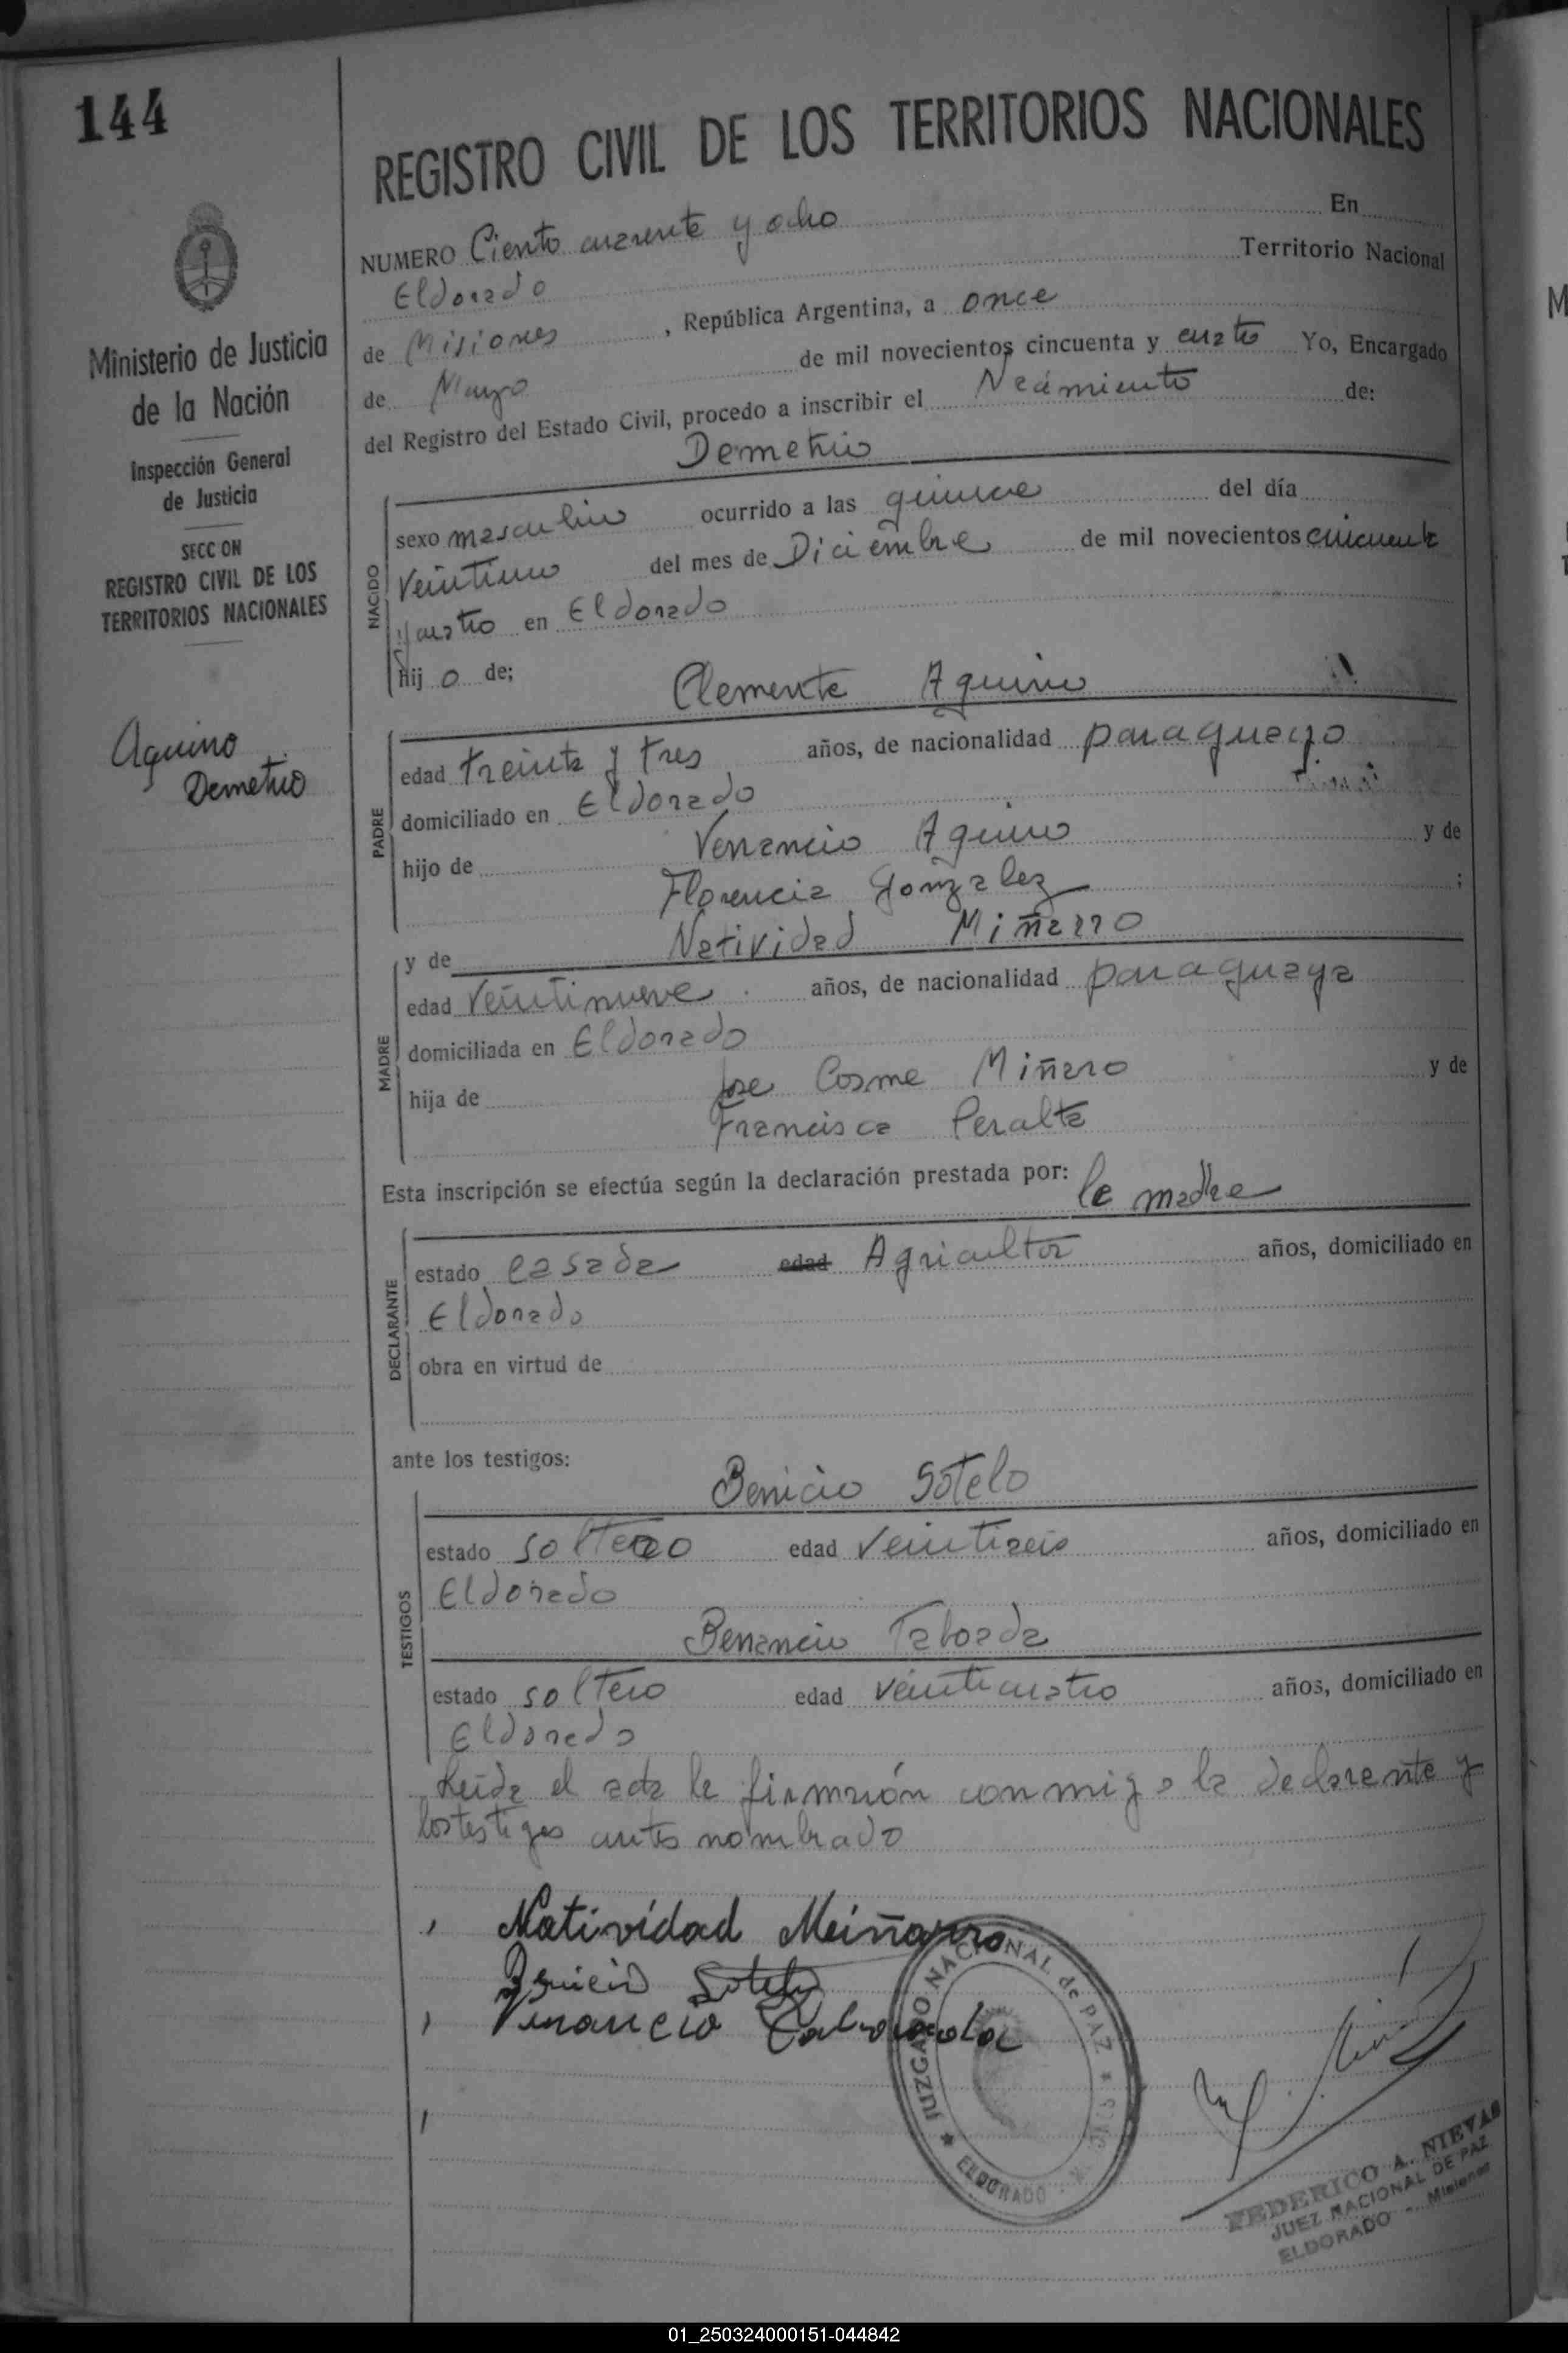 144
REGISTRO CIVIL DE LOS TERRITORIOS NACIONALES
Ministerio de Justicia
de la Nación
Inspección General
de Justicia
SECCION
REGISTRO CIVIL DE LOS
TERRITORIOS NACIONALES
Aquino
Demetrio
NUMERO Ciento cuarenta y ocho En
Eldorado Territorio Nacional
de Misiones, República Argentina, a once
de Mayo de mil novecientos cincuenta y cuatro Yo, Encargado
del Registro del Estado Civil, procedo a inscribir el Nacimiento de:
Demetrio
NACIDO
sexo masculino ocurrido a las quince del día
veintiuno del mes de Diciembre de mil novecientos cincuenta
y cuatro en Eldorado
hijo de;
Clemente Aquino
PADRE
edad treinta y tres años, de nacionalidad paraguayo
domiciliado en Eldorado
hijo de Venancio Aquino y de
Florencia Gonzalez ;
y de Natividad Miñarro
MADRE
edad veintinueve años, de nacionalidad paraguaya
domiciliada en Eldorado
hija de Jose Cosme Miñaro y de
Francisca Peralta
Esta inscripción se efectúa según la declaración prestada por: la madre
DECLARANTE
estado casada edad Agricultor años, domiciliado en
Eldorado
obra en virtud de
ante los testigos:
Benicio Sotelo
TESTIGOS
estado soltero edad veintiseis años, domiciliado en
Eldorado
Benancio Taboada
estado soltero edad veinticuatro años, domiciliado en
Eldorado
Leida el acta la firmarón conmigo la declarente y
los testigos antes nombrado
Natividad Meiñarro
Benicio Sotelo
Venancio Taboada
JUZGADO NACIONAL de PAZ
ELDORADO
FEDERICO A. NIEVAS
JUEZ NACIONAL DE PAZ
ELDORADO - Misiones
01_250324000151-044842